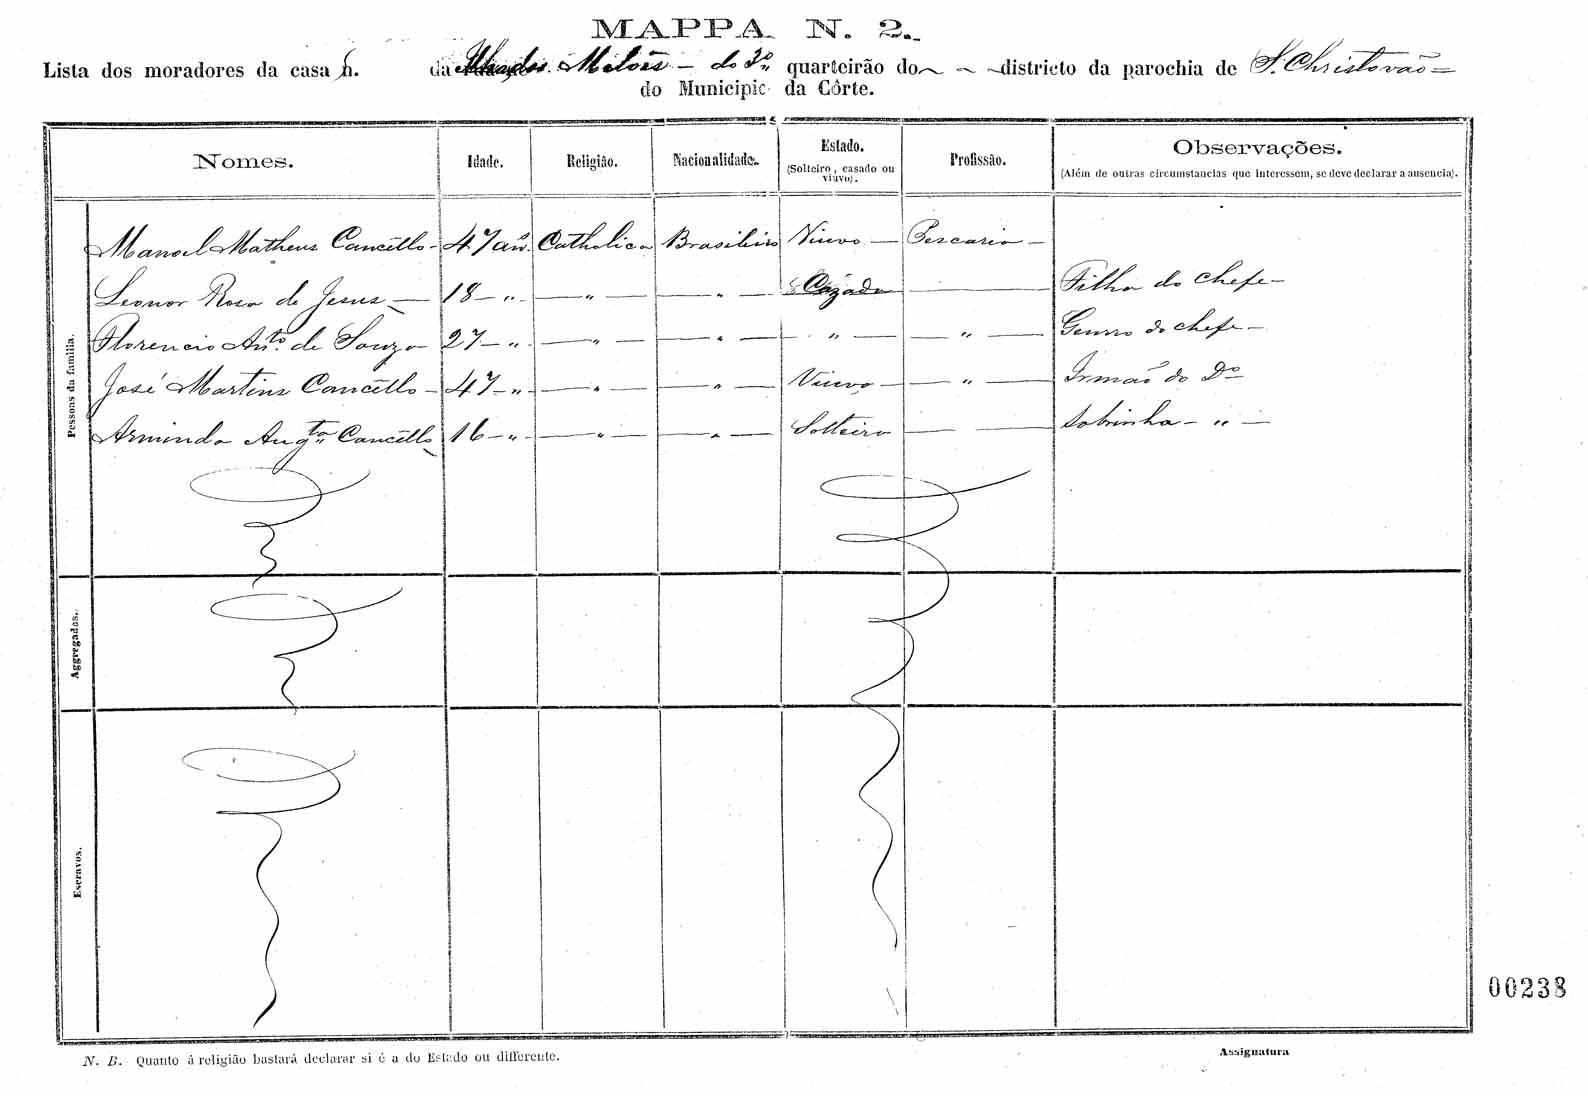 MAPPA N. 2.
Lista dos moradores da casa n. da Ilha dos Melões - do 3º quarteirão do districto da parochia de S. Christovão =
do Municipio da Côrte.
Nomes. Idade. Religião. Nacionalidade. Estado. (Solteiro, casado ou viuvo). Profissão. Observações. (Além de outras circumstancias que interessem, se deve declarar a ausencia).
Pessoas da familia.
Manoel Matheus Cancéllo - 47 an. Catholica Brasileiro Viuvo - Pescaria -
Leonor Rosa de Jesus - 18 - „ - - „ - - „ - Cazada - Filha do chefe -
Florencio Anto. de Souza 27 - „ - - „ - - „ - - „ - - „ - Genro do chefe -
José Martins Cancéllo - 47 - „ - - „ - - „ - Viuvo - - „ - Irmão do Do
Arminda Augta. Cancéllo 16 - „ - - „ - - „ - Solteira - - Sobrinha - „ -
Aggregados.
Escravos.
00238
N. B. Quanto á religião bastará declarar si é a do Estado ou differente.
Assignatura